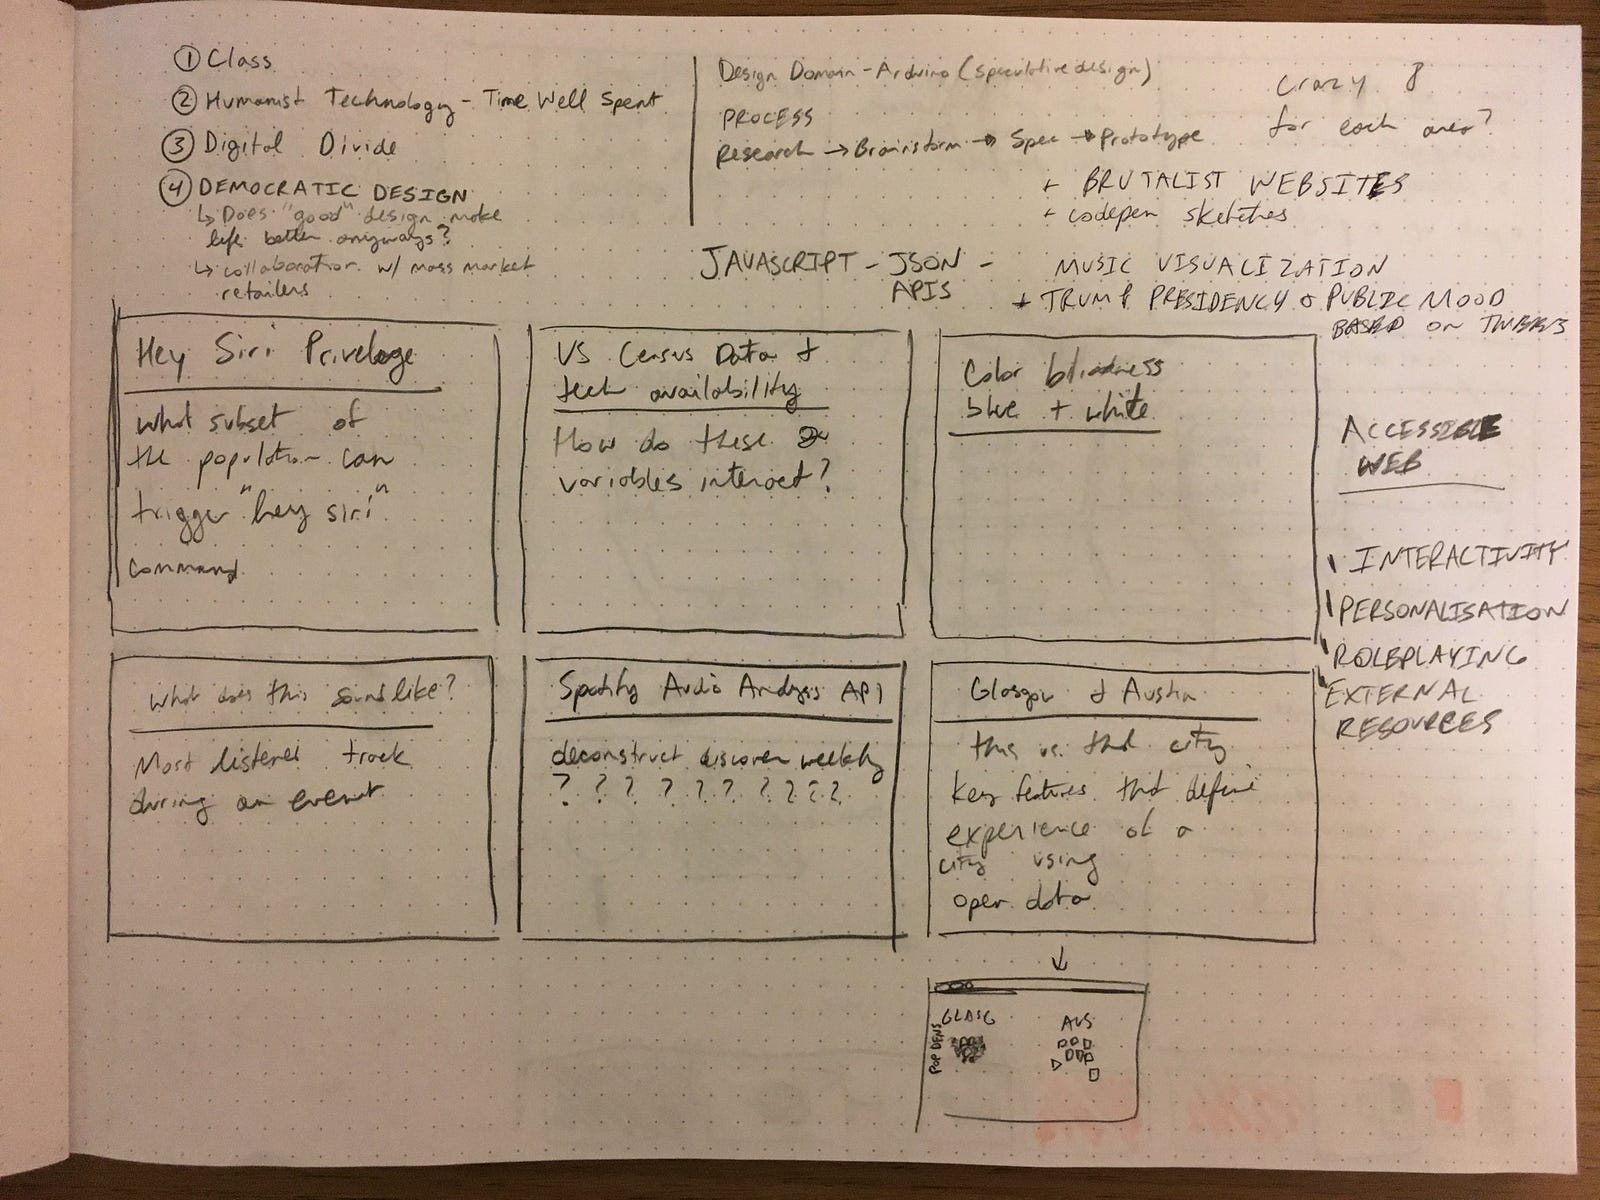 ① Class
② Humanist Technology - Time Well Spent
③ Digital Divide
④ DEMOCRATIC DESIGN
↳ Does "good" design make
life better anyways?
↳ collaboration w/ mass market
retailers
Design Domain - Arduino (speculative design)
PROCESS
Research → Brainstorm → Spec → Prototype
Crazy 8
for each area?
+ BRUTALIST WEBSITES
+ codepen sketches
JAVASCRIPT - JSON -
APIS
MUSIC VISUALIZATION
+ TRUMP PRESIDENCY & PUBLIC MOOD
BASED ON
Hey Siri Priveloge
what subset of
the population can
trigger "hey siri"
command
VS Census Data &
tech availability
How do these 2
variables interact?
Color blindness
blue + white
ACCESSIBLE
WEB
INTERACTIVITY
PERSONALISATION
ROLEPLAYING
EXTERNAL
RESOURCES
What does this sound like?
Most listened track
during an event
Spotify Audio Analysis API
deconstruct discover weekly
? ? ? ? ? ? ? ? ? ?
Glasgow & Austin
this vs. that city
key features that define
experience of a
city using
open data
↓
GLASG
AUS
POP DENS